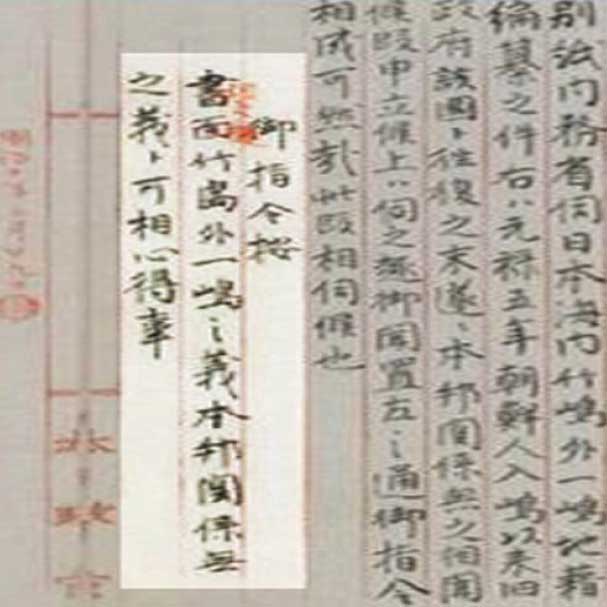 別紙内務省伺日本海内竹嶋外一嶋地籍
編纂之件右ハ元禄五年朝鮮人入嶋以来旧
政府該国ト往復之末遂ニ本邦関係無之相聞
候段申立候上ハ伺之趣御聞置左之通御指令
相成可然哉此段相伺候也
御指令按
書面竹島外一嶋之義本邦関係無
之義ト可相心得事
太政官